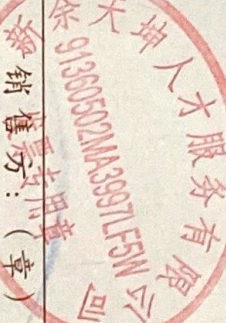 余大坤人才服务有限公司
91360502MA3997LF5W
发票专用章
销售方：（章）